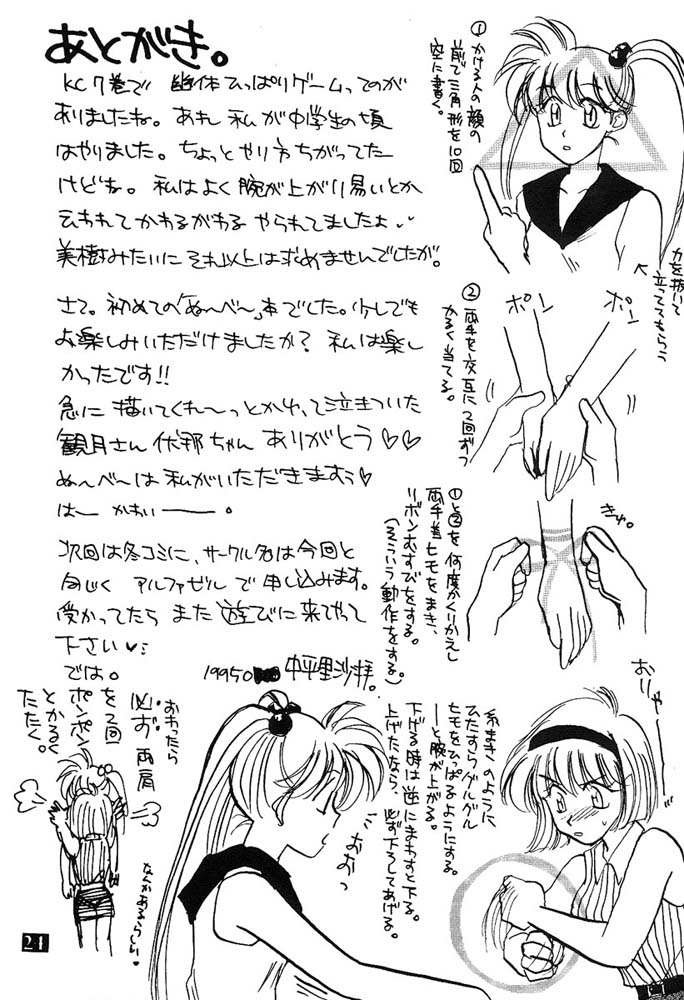 あとがき。
KC7巻で 幽体ひっぱりゲームってのが
ありましたね。あれ 私が中学生の頃
はやりました。ちょっとやり方ちがってた
けどね。私はよく腕が上がり易いとか
云われてかわるがわる やられてましたよ
美樹みたいに それ以上は求めませんでしたが。
さて。初めての「ぬ〜べ〜」本でした。少しでも
お楽しみいただけましたか?私は楽し
かったです!!
急に描いてくれ〜っとかゆって泣きついた
観月さん 伏那ちゃん ありがとう♡♡
ぬ〜べ〜は私がいただきますぅ♡
は― かわいー――。
次回は冬コミに、サークル名は今回と
同じく アルファゼル で申し込みます。
受かってたら また 遊びに来てやって
下さい♥
では。
19950 中平里沙
①かける人の顔の
前で三角形を10回
空に書く。
力を抜いて
立っててもらう
②両手を交互に2回ずつ
かるく当てる。
ポン
ポン
①と②を何度かくりかえし
両手首ヒモをまき、
リボンむすびをする。
(そういう動作をする。)
きゅ。
おりゃー
糸まきのように
ひたすらグルグル
ヒモをひっぱるようにする。
―と腕が上がる。
下げる時は逆にまわすと下る。
上げたなら、必ず下ろしてあげる。
おおっ
おわったら
必ず両肩
を2回
ポンポン
とかるく
たたく。
なんかあるらしい♥
24